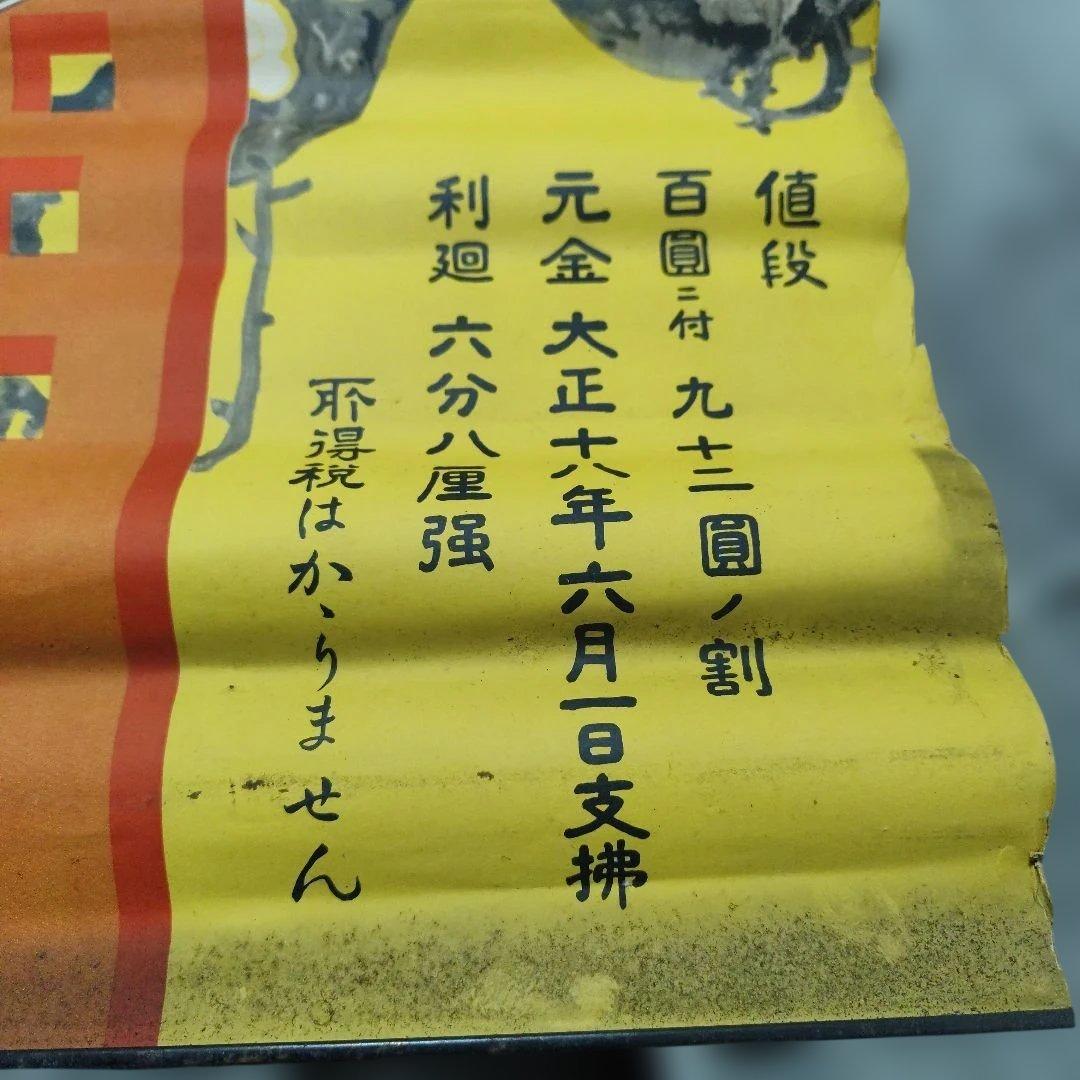 値段
百圓ニ付 九十二圓ノ割
元金 大正十八年六月一日支拂
利廻 六分八厘强
所得税はかゝりません